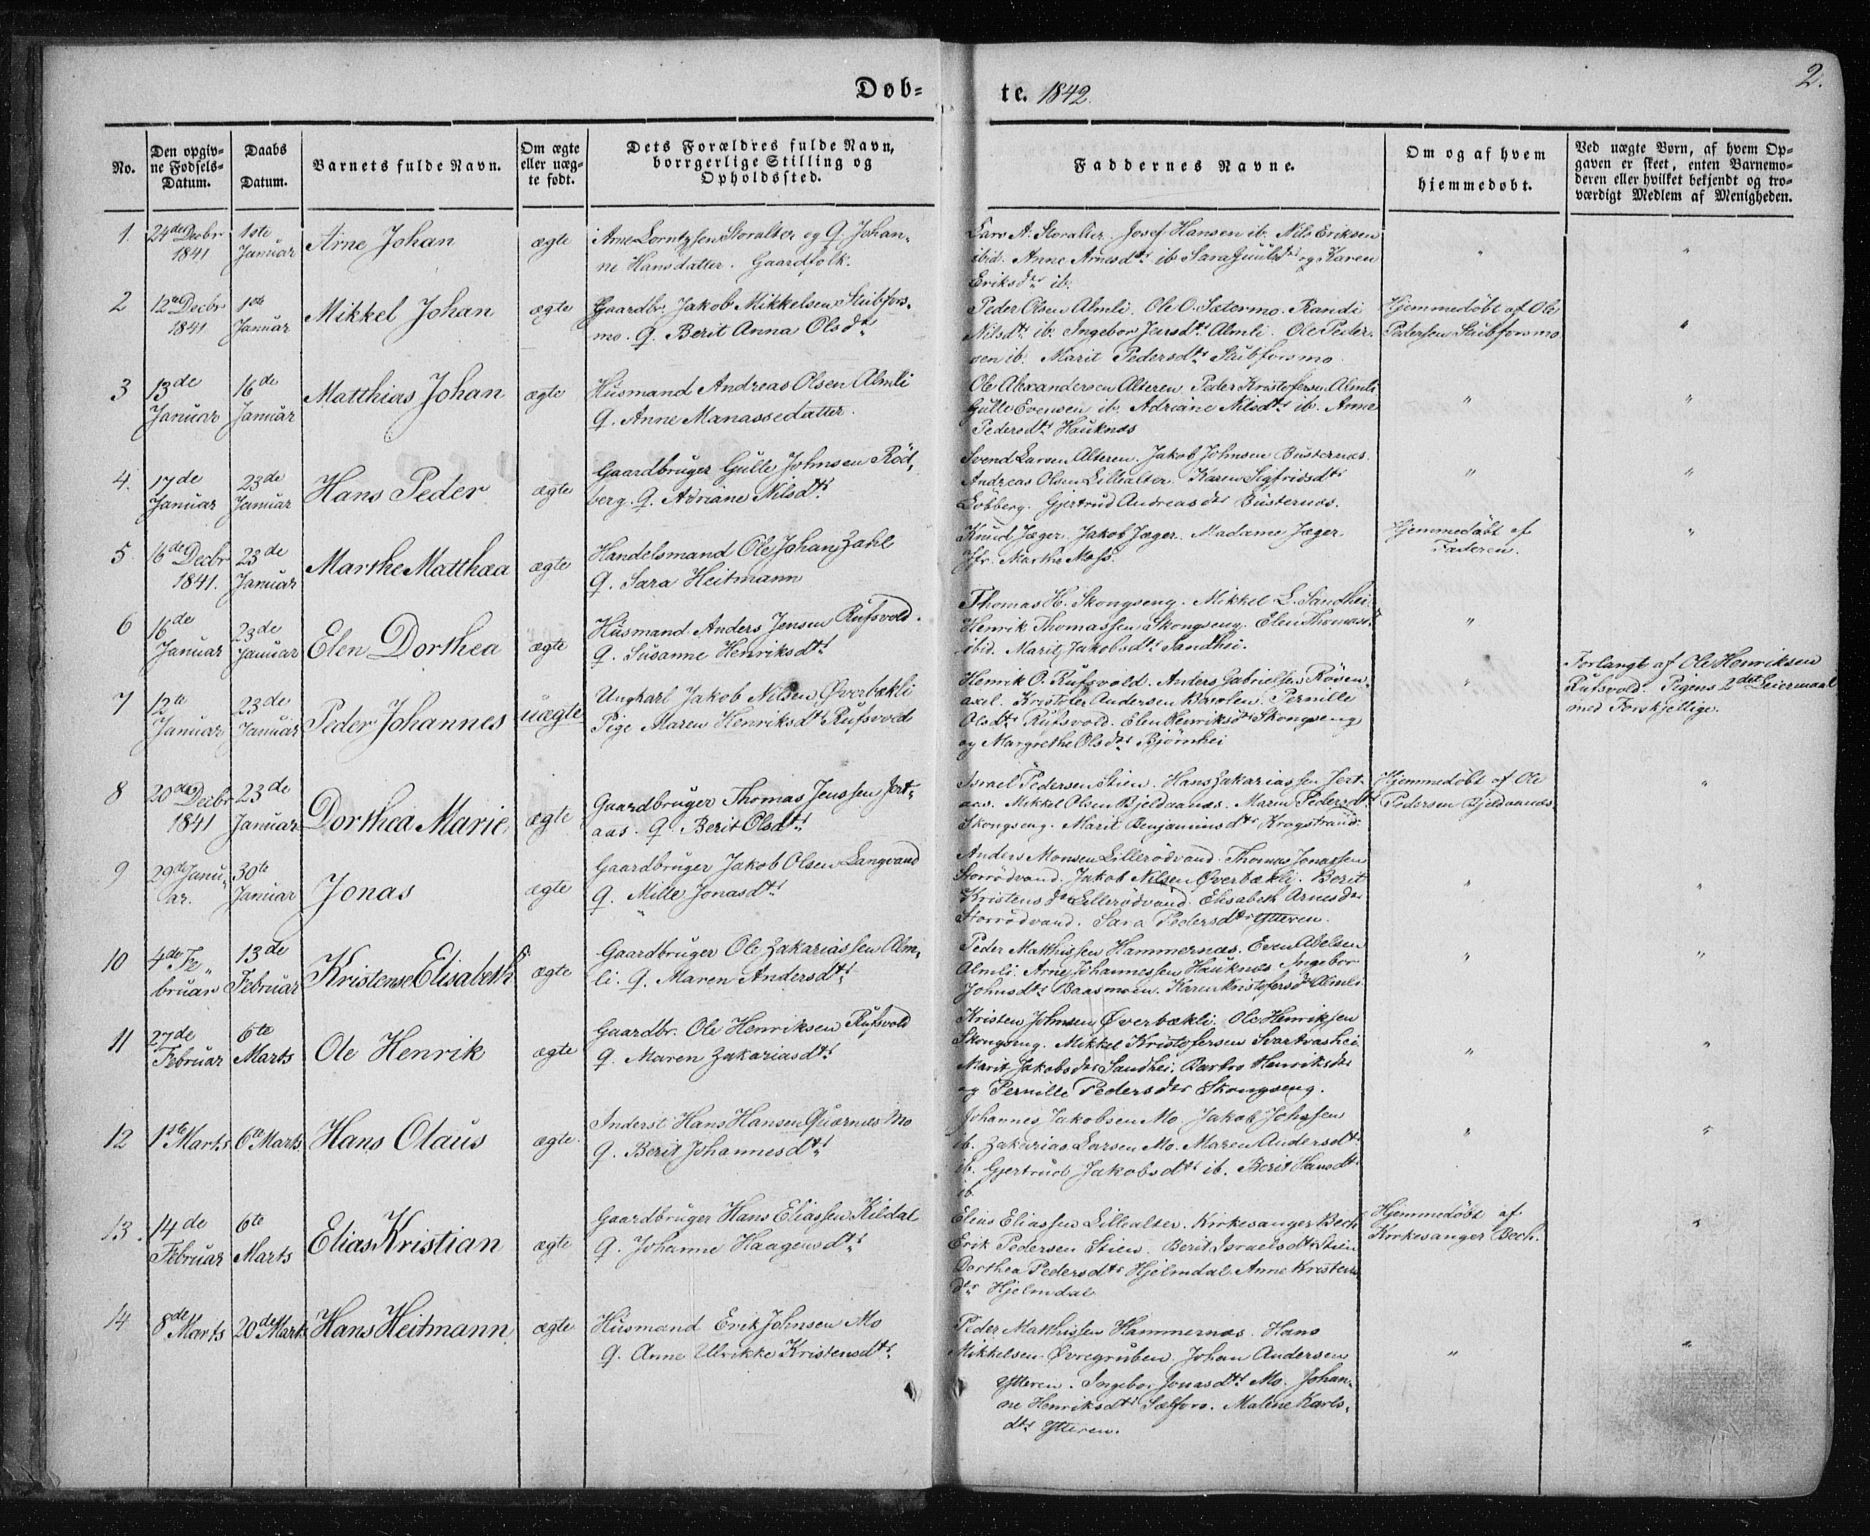 Døb-
te. 1842
2.
No.
Den opgiv-
ne Fødsels-
Datum.
Daabs
Datum.
Barnets fulde Navn.
Om ægte
eller uæg-
te født.
Dets Forældres fulde Navn,
borrgerlige Stilling og
Opholdssted.
Faddernes Navne.
Om og af hvem
hjemmedøbt.
Ved uægte Børn, af hvem Op-
gaven er skeet, enten Barnemo-
deren eller hvilket bekjendt og tro-
værdigt Medlem af Menigheden.
1.
24de Decbr
1841
1ste
Januar
Arne Johan
ægte
Arne Lorntzsen Storalter og Q. Johan-
ne Hansdatter. Gaardfolk.
Lars A. Storalter. Josef Hansen ib. Nils Eriksen
ibid. Anne Arnesdtr ib. Sara Guulsdtr og Karen
Eriksdtr ib.
"
"
2
12te Decbr
1841
1ste
Januar
Mikkel Johan
ægte
Gaardbr. Jakob Mikkelsen Stibfors-
mo. Q. Berit Anna Olsdtr
Peder Olsen Almli. Ole O. Sætermo. Randi
Nilsdtr ib. Ingebor Jarsdtr Almli. Ole Peder-
sen ib. Marit Pedersdtr Stibforsmo.
Hjemmedøbt af Ole
Pedersen Stibforsmo
"
3
13de
Januar
16de
Januar
Matthias Johan
ægte
Husmand Andreas Olsen Almli
Q. Anne Manassedatter.
Ole Alexandersen Alteren. Peder Kristofersen Almli
Gulle Evensen ib. Adriane Nilsdtr ib. Anne
Pedersdtr Hauknæs
"
"
4.
17de
Januar
23de
Januar
Hans Peder
ægte
Gaardbruger Gulle Johnsen Rød,
berg. Q. Adriane Nilsdtr
Svend Larsen Alteren. Jakob Johnsen Busternæs.
Andreas Olsen Lillealter. Karen Sigfridsdtr
Løbberg. Gjertrud Andreasdtr Busternæs.
"
"
5.
16de Decbr
1841.
23de
Januar
Marthe Matthea
ægte
Handelsmand Ole Johan Zahl
Q. Sara Heitmann
Knud Jæger. Jakob Jæger. Madame Jæger
Jfr. Marthe Moss.
Hjemmedøbt af
Faderen.
"
6
16de
Januar
23de
Januar
Elen Dorthea
ægte
Husmand Anders Jensen Rufsvold.
Q. Susanne Henriksdtr
Thomas H. Skongseng. Mikkel L. Sandhei
Henrik Thomassen Skongseng. Elen Thomasdtr
ibid. Marit Jakobsdtr Sandhei.
"
7
12te
Januar
23de
Januar
Peder Johannes
uægte
Ungkarl Jakob Nilsen Øverbækli
Pige Maren Henriksdtr Rufsvold
Henrik O. Rufsvold. Anders Gabrielsen Røven-
axel. Kristofer Andersen Basolen. Pernille
Olsdtr Rufsvold. Elen Henriksdtr Skongseng
og Margrethe Olsdtr Bjørnhei
"
Forlangt af Ole Henriksen
Rufsvold. Pigens 2det Leiermaal
med Forskjellige.
8
20de Decbr
1841
23de
Januar
Dorthea Marie
ægte
Gaardbruger Thomas Jenssen Jert-
aas. Q. Berit Olsdtr
Israel Pedersen Stien. Hans Zakariassen Jert-
aas. Mikkel Olsen Bjeldaanæs. Maren Pedersdtr
Skongseng. Marit Benjaminsdtr Krogstrand
Hjemmedøbt af Ole
Pedersen Bjeldaanæs
"
9
29de Janu-
ar.
30te
Januar
Jonas
ægte
Gaardbruger Jakob Olsen Langvand
Q. Mille Jonasdtr
Anders Monsen Lillerødvand. Thomas Jonassen
Storrødvand. Jakob Nilsen Øverbækli. Berit
Kristensdtr Lillerødvand. Elisabeth Arnesdtr
Storrødvand. Sara Pedersdtr Ytteren.
"
"
10
4de Fe-
bruar
13de
Februar
Kristense Elisabeth
ægte
Gaardbruger Ole Zakariassen Alm-
li. Q. Maren Andersdtr
Peder Matthissen Hammernæs. Even Abelsen
Almli. Arne Johannessen Hauknæs Ingebor
Johnsdtr Baasmoen. Karen Kristofersdtr Almli
"
"
11
27de
Februar
6te
Marts
Ole Henrik
ægte
Gaardbr. Ole Henriksen Rufsvold
Q. Maren Zakariasdtr
Kristen Johnsen Øverbækli. Ole Henriksen
Skongseng. Mikkel Kristofersen Svartvashei
Marit Jakobsdtr Sandhei. Barbro Henriksdtr
og Pernille Pedersdtr Skongseng.
"
"
12
1ste Marts
6te Marts
Hans Olaus
ægte.
Inderst Hans Hansen Quærnæs Mo
Q. Berit Johannesdtr
Johannes Jakobsen Mo Jakob Johnsen
ib. Zakarias Larsen Mo. Maren Andersdtr
ib. Gjertrud Jakobsdtr ib. Berit Hansdtr
ib.
"
"
13.
14de
Februar
6te
Marts
Elias Kristian
ægte
Gaardbruger Hans Eliassen Kildal
Q. Johanne Haagensdtr
Elias Eliassen Lillealter. Kirkesanger Bech
Erik Pedersen Stien. Berit Israelsdtr Stien
Dorthea Pedersdtr Hjelmdal Anne Kristens-
dtr Hjelmdal
Hjemmedøbt af
Kirkesanger Bech.
"
14
8de Marts
20de Marts
Hans Heitmann
ægte
Husmand Erik Johnsen Mo
Q. Anne Ulrikke Kristensdtr
Peder Matthissen Hammernæs. Hans
Mikkelsen Øvregruben. Johan Andersen
Ytteren. Ingebor Jonasdtr Mo. Johan-
ne Henriksdtr Sælfors. Malene Karls-
dtr Ytteren.
"
"